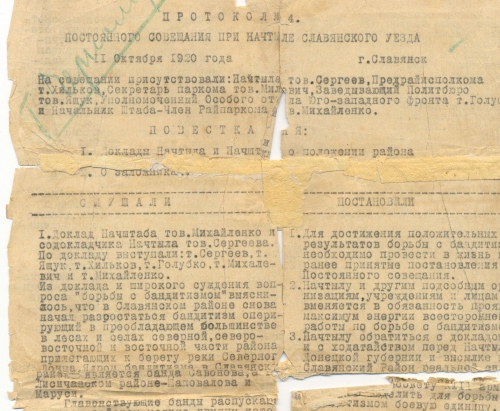 ПРОТОКОЛ № 4.
ПОСТОЯННОГО СОВЕЩАНИЯ ПРИ НАЧТЫЛЕ СЛАВЯНСКОГО УЕЗДА
II Октября 1920 года г.Славянск
На совещании присутствовали:Начтыла тов.Сергеев,Предрайисполкома
т.Хильков,Секретарь паркома тов. Заведывающий Политбюро
тов.Ящук,Уполномоченный Особого отдела Юго-западного фронта т.Голуб
и Начальник Штаба-Член Райпаркома тов.Михайленко.
ПОВЕСТКА
I. Доклады Начтыла и Начштаба о положении района
2. О заложниках.
СЛУШАЛИ
ПОСТАНОВИЛИ
I.Доклад Начштаба тов.Михайленко и
содокладчика Начтыла тов.Сергеева.
По докладу выступали:т.Сергеев,т.
Ящук,т.Хильков,т.Голубко,т.Михале-
вич и т.Михайленко.
Из доклада и широкого суждения воп-
роса "борьбы с бандитизмом"выясни-
лось,что в Славянском районе снова
начал разростаться бандитизм опери-
рующий в преобладающем большинстве
в лесах и селах северной,северо-
восточной и восточной части района
прилегающих к берегу реки Северного
Донца.Ядром бандитизма в Славянск
районе является банда
Лисичанском районе-Шаповалова и
Маруси.
Главенствующие банды распускаю
I.Для достижения положительных
результатов борьбы с бандитиз
необходимо провести в жизнь
ранее принятые постановления
Постоянного совещания.
2. Начтылу и другим подсобным ор
низациям,учреждениям и лицам
вменяется в обязанность прояв
максимум энергии всесторонне
работы по борьбе с бандитизмо
3. Начтылу обратиться с докладом
и с ходатайством перед Начты
Донецкой губернии о высылке
Славянский Район реальной
для борьбы
с бандитизмом боевую единицу